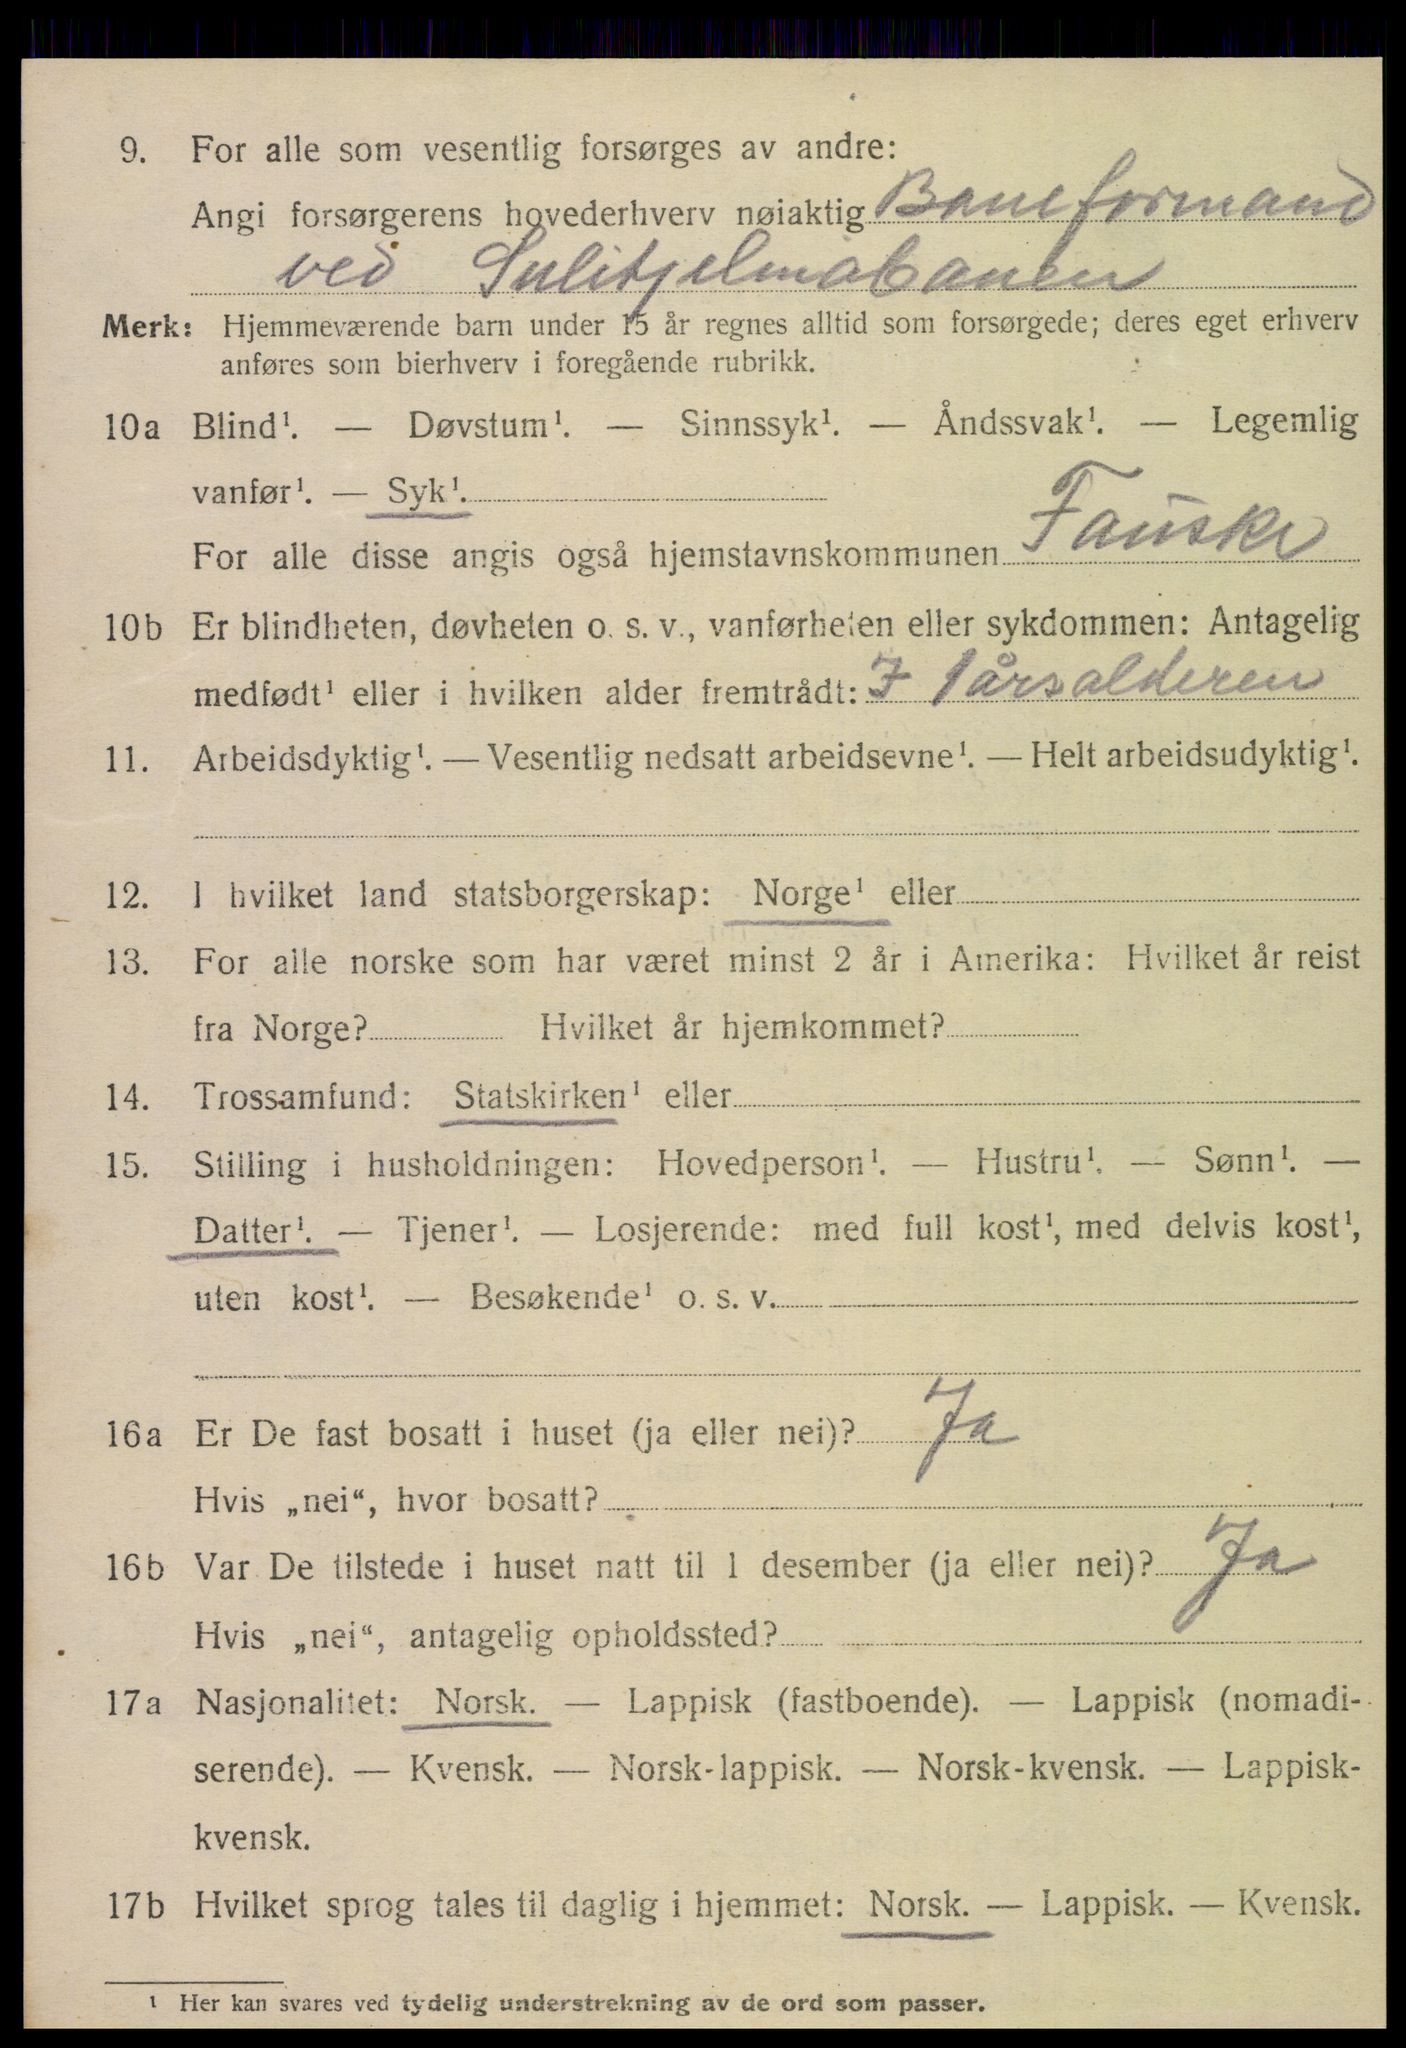 9. For alle som vesentlig forsørges av andre:
Angi forsørgerens hovederhverv nøiaktig Baneformand
ved Sulitjelmabanen
Merk: Hjemmeværende barn under 15 år regnes alltid som forsørgede; deres eget erhverv
anføres som bierhverv i foregående rubrikk.
10a Blind¹. — Døvstum¹. — Sinnssyk¹. — Åndssvak¹. — Legemlig
vanfør¹. — Syk¹.
For alle disse angis også hjemstavnskommunen Fauske
10b Er blindheten, døvheten o. s. v., vanførheten eller sykdommen: Antagelig
medfødt¹ eller i hvilken alder fremtrådt: I 1årsalderen
11. Arbeidsdyktig¹. — Vesentlig nedsatt arbeidsevne¹. — Helt arbeidsudyktig¹.
12. I hvilket land statsborgerskap: Norge¹ eller
13. For alle norske som har været minst 2 år i Amerika: Hvilket år reist
fra Norge? Hvilket år hjemkommet?
14. Trossamfund: Statskirken¹ eller
15. Stilling i husholdningen: Hovedperson¹. — Hustru¹. — Sønn¹. —
Datter¹. — Tjener¹. — Losjerende: med full kost¹, med delvis kost¹,
uten kost¹. — Besøkende¹ o. s. v.
16a Er De fast bosatt i huset (ja eller nei)? Ja
Hvis „nei“, hvor bosatt?
16b Var De tilstede i huset natt til 1 desember (ja eller nei)? Ja
Hvis „nei“, antagelig opholdssted?
17a Nasjonalitet: Norsk. — Lappisk (fastboende). — Lappisk (nomadi-
serende). — Kvensk. — Norsk-lappisk. — Norsk-kvensk. — Lappisk-
kvensk.
17b Hvilket sprog tales til daglig i hjemmet: Norsk. — Lappisk. — Kvensk.
¹ Her kan svares ved tydelig understrekning av de ord som passer.